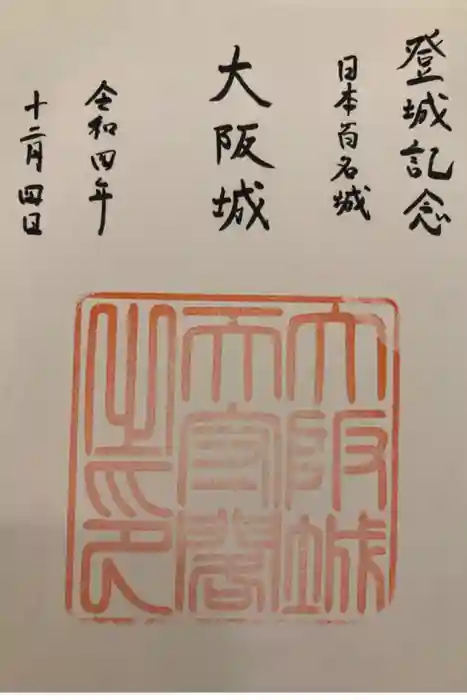 登城記念
日本百名城
大阪城
令和四年
十二月四日
大阪城
天守閣
之印